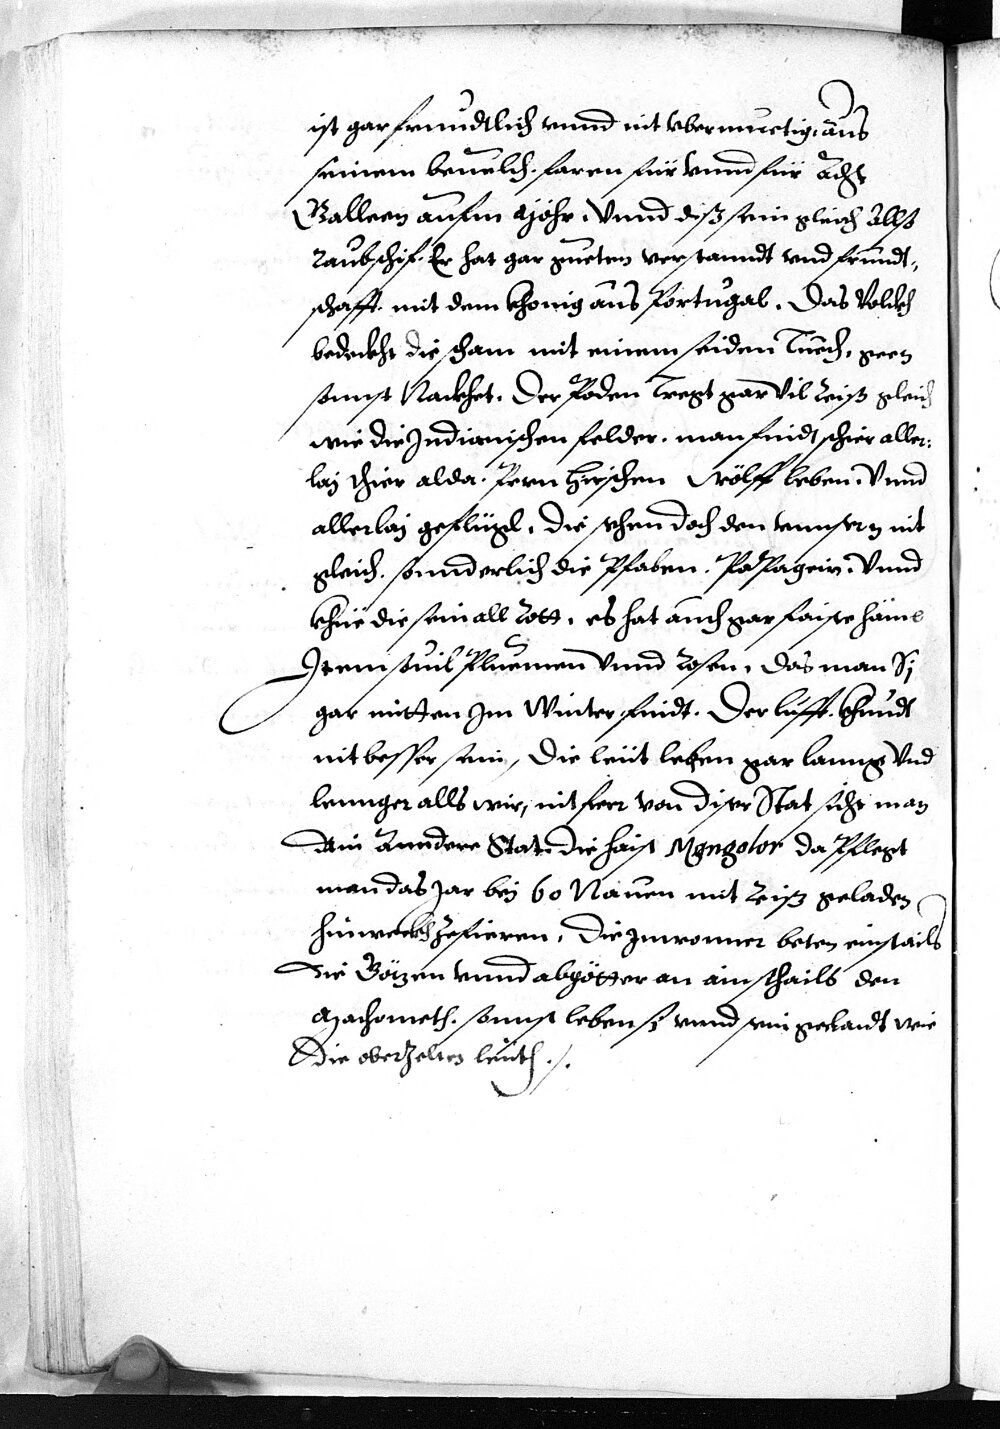 ist gar freundtlich vnnd nit vbermuetig, aus
seinem beuelch. faren für vnnd für Acht
Galleen aufm Möhr. Vnnd diß sein gleich Allß
Raubschif. Er hat gar gueten verstanndt vnd frundt-
schafft. mit dem khonig aus Portugal. Das Volckh
bedeckht die scham mit einem seiden Tuech, geen
sonnst Nackhet. Der Poden Tregt gar Vil Reiß gleich
wie die Indianischen felder. man findt schier aller-
laj thier alda. Pern Hirschen Wölff leben. Vnnd
allerlaj geflügl, die sehen doch den vnnsern nit
gleich. sonnderlich die Pfaben. Papagein. Vnnd
khüe die sein all Rott, es hat auch gar faiste häme
Item souil Pluemen Vnnd Rosen, das man Sj
gar mitten Im Winter findt. Der lufft khundt
nit besser sein, Die leüt leben gar lanng Vnd
lennger alls wir, nit ferr von diser Stat sicht man
Ain Anndere Stat die haist Mengolor da Pflegt
man das Jar bej 60 Nauen mit Reiß geladen
hinweckh zefieren. Die Inwonner beten eins tails
die Götzen vnnd abgötter an ains thails den
Machometh. sonnst lebens vnnd sein geclaidt wie
die oberzelten leüth ./.